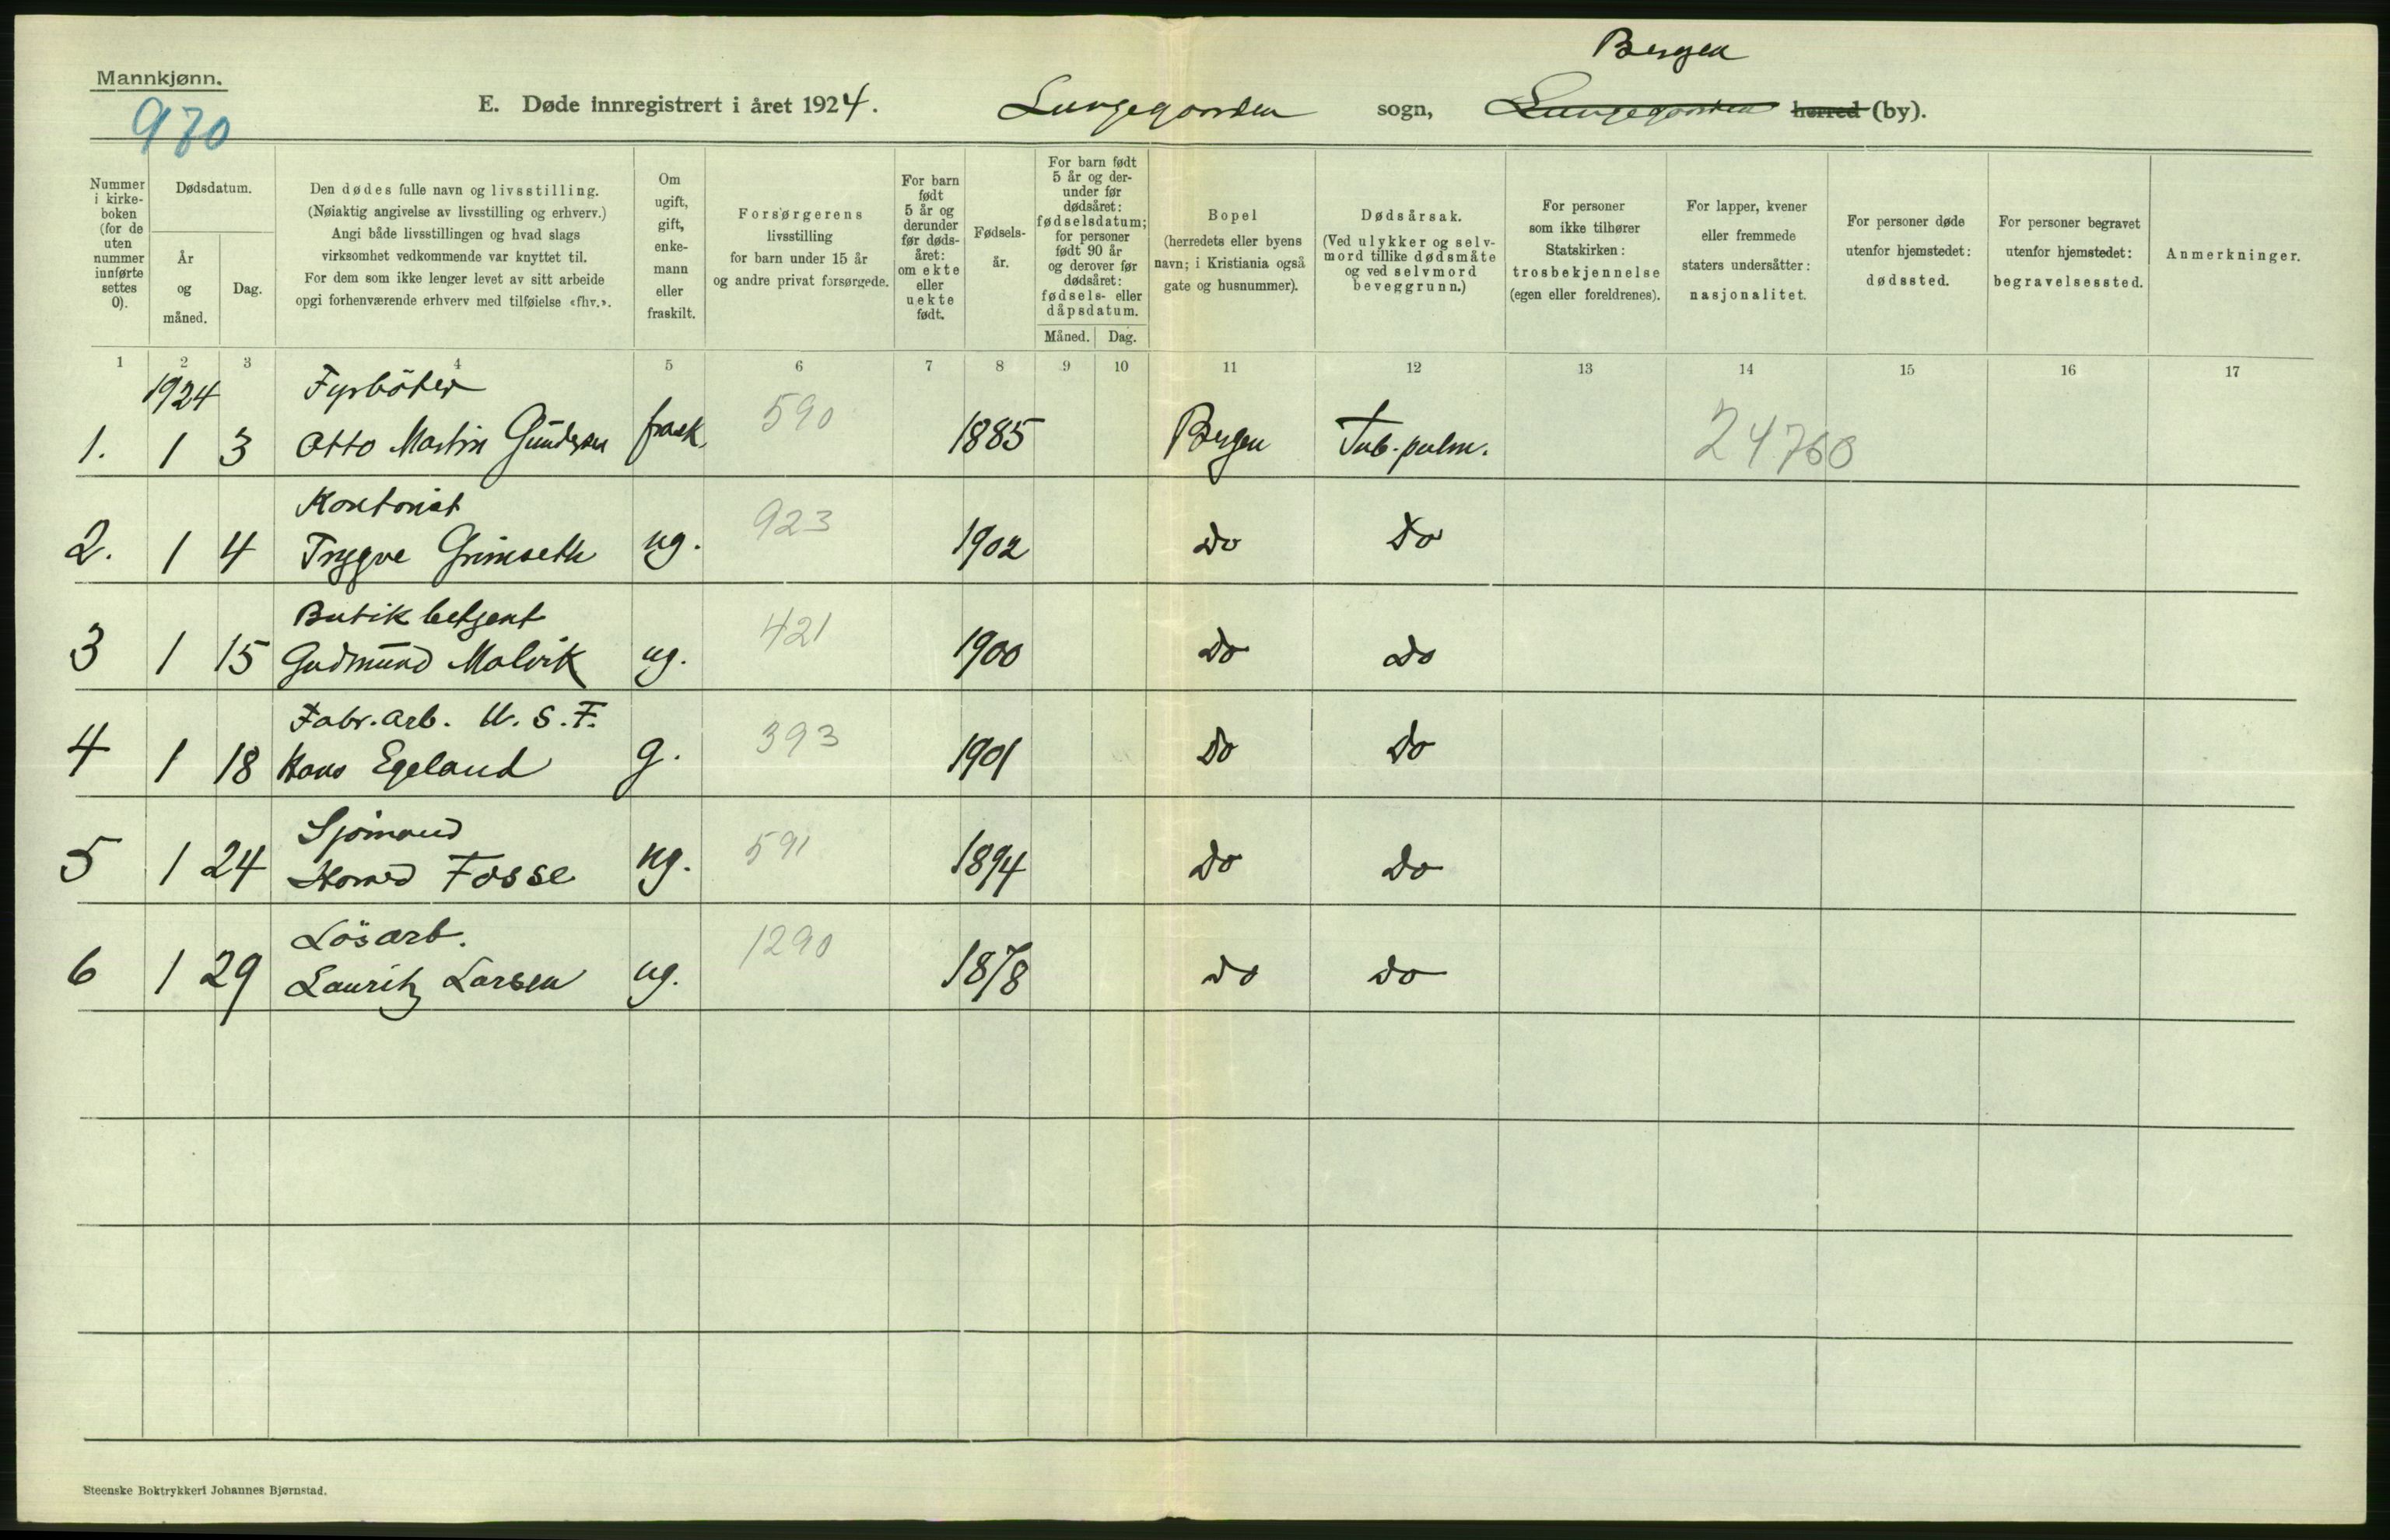 Bergen
Mannkjønn.
970
E. Døde innregistrert i året 1924. Lungegaarden sogn, Lungegaarden herred (by).
Nummer
i kirke-
boken
(for de
uten
nummer
innførte
settes
0).
Dødsdatum.
År
og
måned.
Dag.
Den dødes fulle navn og livsstilling.
(Nøiaktig angivelse av livsstilling og erhverv.)
Angi både livsstillingen og hvad slags
virksomhet vedkommende var knyttet til.
For dem som ikke lenger levet av sitt arbeide
opgi forhenværende erhverv med tilføielse «fhv.».
Om
ugift,
gift,
enke-
mann
eller
fraskilt.
Forsørgerens
livsstilling
for barn under 15 år
og andre privat forsørgede.
For barn
født
5 år og
derunder
før døds-
året:
om ekte
eller
uekte
født.
Fødsels-
år.
For barn født
5 år og der-
under før
dødsåret:
fødselsdatum;
for personer
født 90 år
og derover før
dødsåret:
fødsels- eller
dåpsdatum.
Måned. Dag.
Bopel
(herredets eller byens
navn; i Kristiania også
gate og husnummer).
Dødsårsak.
(Ved ulykker og selv-
mord tillike dødsmåte
og ved selvmord
beveggrunn.)
For personer
som ikke tilhører
Statskirken:
trosbekjennelse
(egen eller foreldrenes).
For lapper, kvener
eller fremmede
staters undersåtter:
nasjonalitet.
For personer døde
utenfor hjemstedet:
dødssted.
For personer begravet
utenfor hjemstedet:
begravelsessted.
Anmerkninger.
1 2 3 4 5 6 7 8 9 10 11 12 13 14 15 16 17
1924 Fyrböter
1. 1 3 Otto Martin Gundersen frask. 590 1885 Bergen Tub. pulm. 24760
Kontorist
2. 1 4 Trygve Grimseth ug. 923 1902 Do Do
Butik betjent
3 1 15 Gudmund Malvik ug. 421 1900 Do Do
Fabr. arb. U. S. F.
4 1 18 Hans Egeland g. 393 1901 Do Do
Sjömand
5 1 24 Fosse ug. 591 1894 Do Do
Lösarb.
6 1 29 Lauritz Larsen ug. 1290 1878 Do Do
Steenske Boktrykkeri Johannes Bjørnstad.